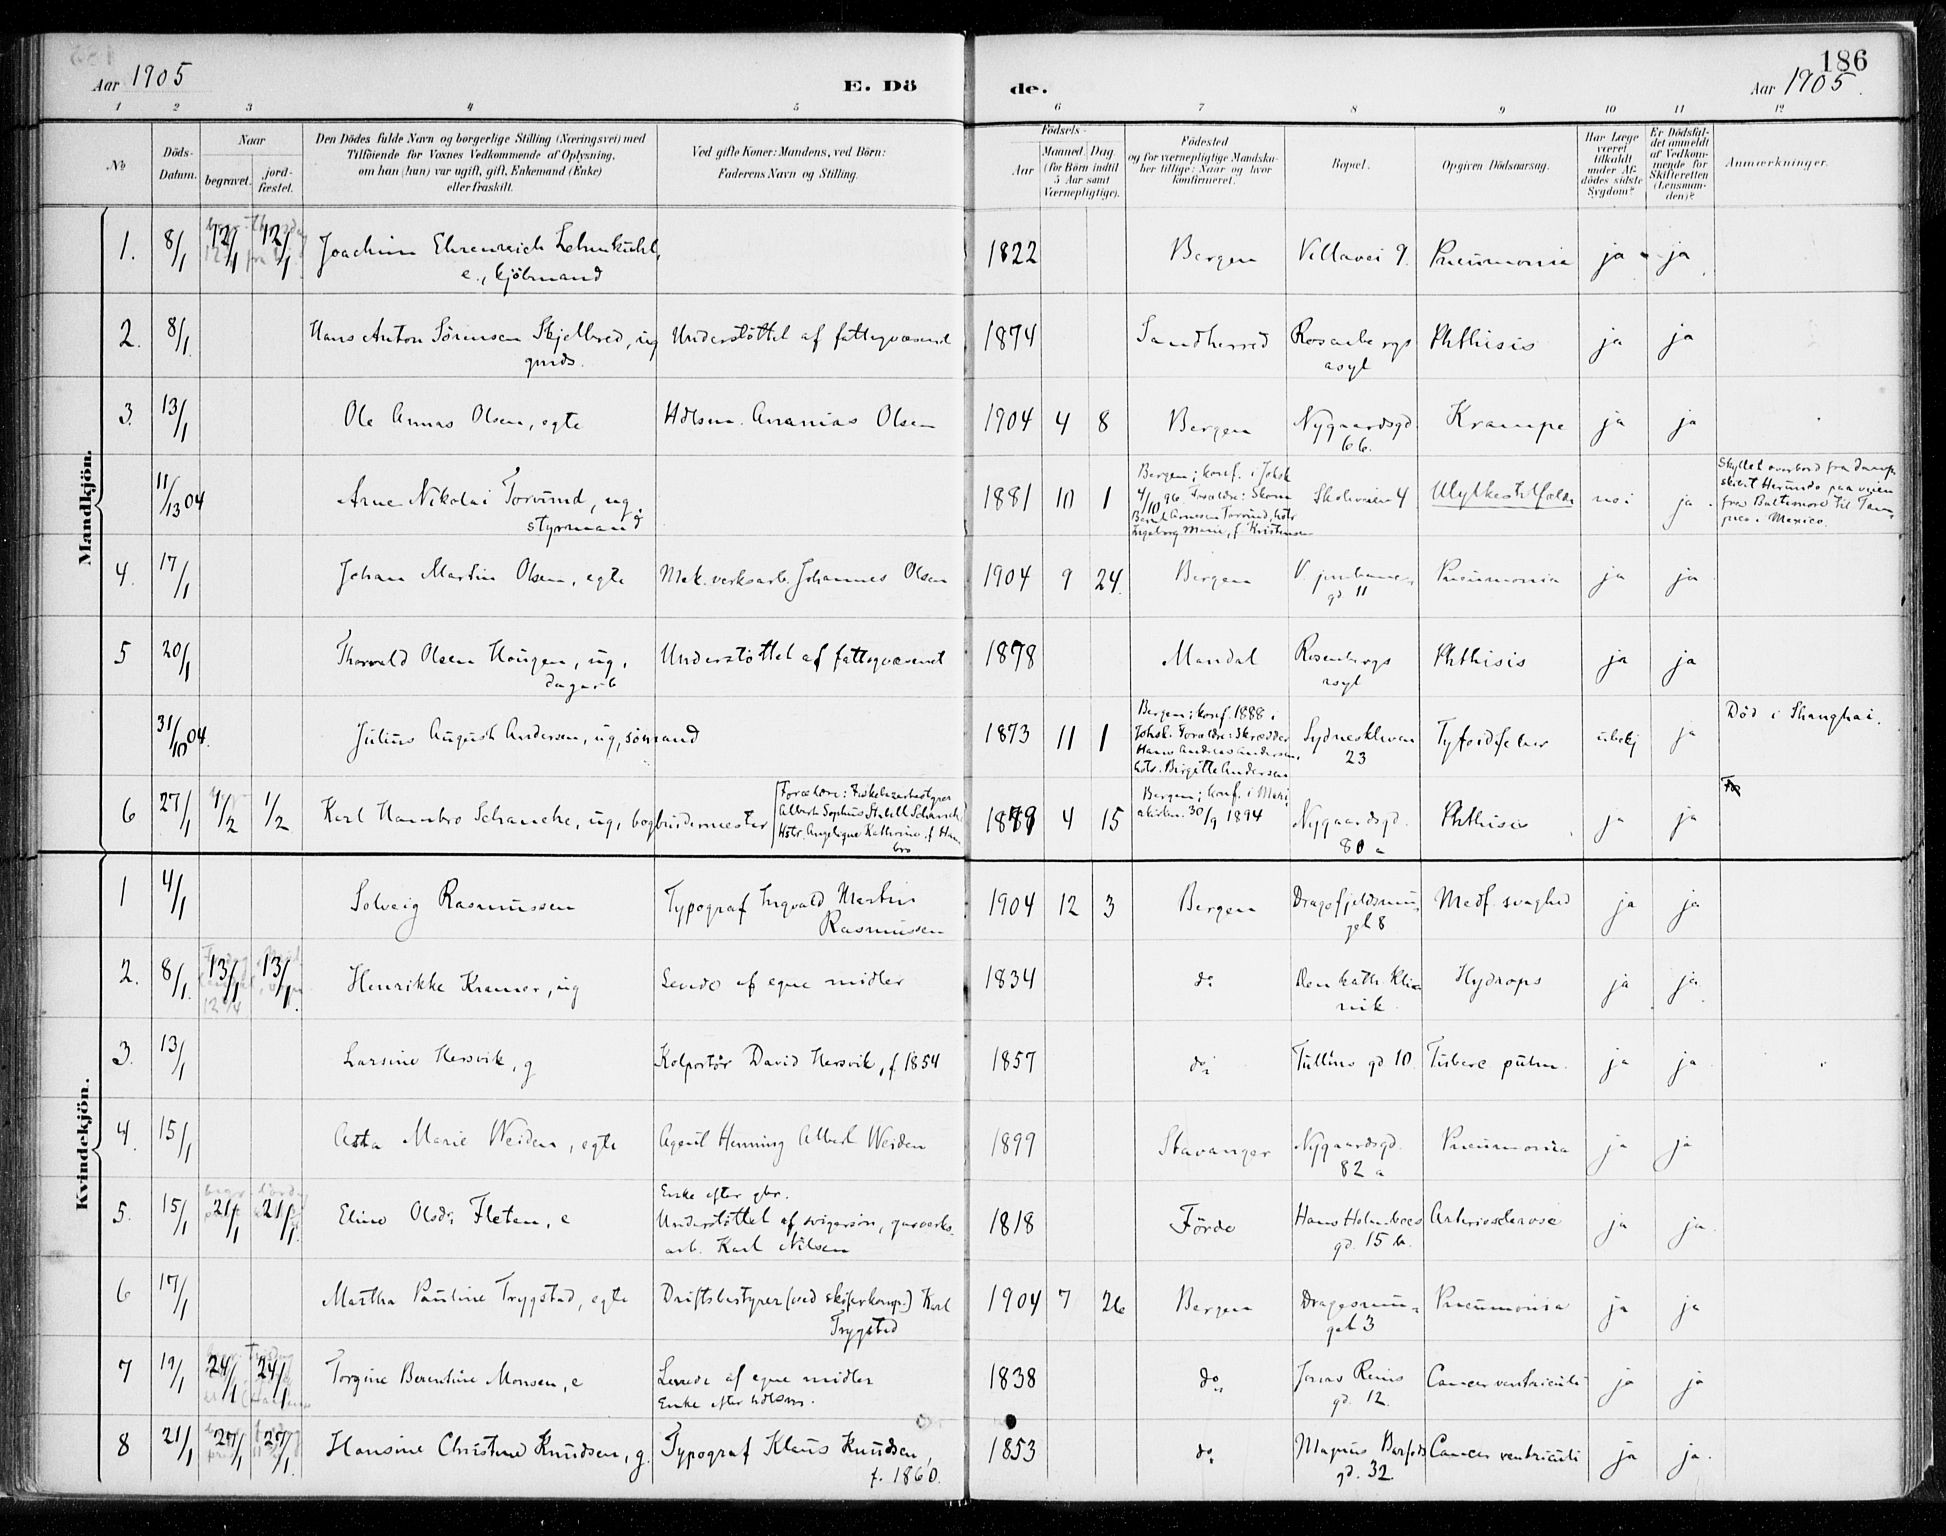 186
Aar 1905
E. Dö
de.
Aar 1905.
1 2 3 4 5 6 7 8 9 10 11 12
No
Döds-
Datum.
Naar
begravet.
jord-
fæstet.
Den Dödes fulde Navn og borgerlige Stilling (Næringsvei) med
Tilföiende for Voxnes Vedkommende af Oplysning,
om han (hun) var ugift, gift, Enkemand (Enke)
eller fraskilt.
Ved gifte Koner: Mandens, ved Börn:
Faderens Navn og Stilling.
Födsels-
Aar
Maaned.
Dag
(for Börn indtil
5 Aar samt
Værnepligtige).
Födested
og for værnepligtige Mandska-
ber tillige: Naar og hvor
konfirmeret.
Bopæl.
Opgiven Dödsaarsag.
Har Læge
været
tilkaldt
under Af-
dödes sidste
Sygdom?
Er Dödsfal-
det anmeldt
af Vedkom-
mende for
Skifteretten
(Lensman-
den)?
Anmærkninger.
Mandkjön.
1. 8/1 12/1 12/1 Joachim Ehrenreich Lehmkuhl, 1822 Bergen Villavei 9. Pneumonia ja ja
e., kjöbmand
2. 8/1 Hans Anton Sörensen Skjelbred, ug Understöttet af fattigvæsenet 1874 Sandherred Rosenbergs Phthisis ja ja
asyl
3. 13/1 Ole Annas Olsen, egte Hdlsm. Ananias Olsen 1904 4 8 Bergen Nygaardsgd. Krampe ja ja
66.
11/13 04 Arne Nikolai Torvund, ug. 1881 10 1 Skoleveien 4 Ulykkestilfælde nei ja
styrmand
Bergen; konf. i Johsk
4/10 96. Forældre: Skom
Bernt Arnesen Torvund, hstr
Ingeborg Marie, f. Kristensen
Skyllet overbord fra damp-
skibet Herundo paa veien
fra Baltimore til Tam-
pico i Mexico.
4. 17/1 Johan Martin Olsen, egte Mek. verksarb. Johannes Olsen 1904 9 24. Bergen V. jernbane- Pneumonia ja ja
gd 11
5 20/1 Thorvald Olsen Hougen, ug, Understöttet af fattigvæsenet 1878 Mandal Rosenbergs Phthisis ja ja
dagarb asyl
31/10 04. Julius August Andersen, ug, sömand 1873 11 1 Sydneskleven Tyfoidfeber ubekj ja Död i Shanghai.
23
Bergen; konf. 1888 i
Johsk. Forældre: Skrædder
Hans Andreas Andersen,
hstr. Birgitte Andersen
6 27/1 1/2 1/2 Karl Hambro Schanche, ug, bogbindermester 1879 4 15 Nygaardsgd. Phthisis ja ja
80 a
Forældre: Fiskehavebestyrer
Albert Sophus Stabell Schanche
Hstr. Angelique Kathrine f. Ham-
bro
Bergen; konf. i Mari-
akirken 30/9 1894
Kvindekjön.
1 4/1 Solveig Rasmussen Typograf Ingvald Martin 1904 12 3 Bergen Dragefjeldsmu- Medf. svaghed ja ja
Rasmussen get 8
2. 8/1. 13/1 13/1. Henrikke Kramer, ug Levde af egne midler 1834 do Den kath. kli- Hydrops ja ja
nik
3. 13/1 Larsine Hersvik, g Kolportör David Hersvik, f 1854 1857 do Tullins gd 10. Tuberc. pulm. ja ja
4. 15/1 Asta Marie Weiden, egte Agent Henning Albert Weiden 1899 Stavanger Nygaardsgd. Pneumonia ja ja
82 a
5. 15/1 21/1 21/1. Eline Olsdr Fleten, e Enke efter gbr.
Understöttet af svigersön, gasverks- 1818 Förde Hans Holmboes Arteriosclerose ja ja
arb. Karl Nilsen gd. 15 b.
6 17/1 Martha Pauline Trygstad, egte Driftsbestyrer (ved skiferkomp.) Karl 1904 7 26 Bergen Dragesmu- Pneumonia ja ja
Trygstad get 3
7 19/1 24/1 24/1 Torgine Berentine Monsen, e Levede af egne midler 1838 do Jonas Reins Cancer ventriculi ja ja
Enke efter hdlsm. gd. 12.
8 21/1 27/1 27/1. Hansine Christine Knudsen, g. Typograf Klaus Knudsen, 1853 do Magnus Barfods Cancer ventriculi ja ja.
f. 1860. gd. 32.